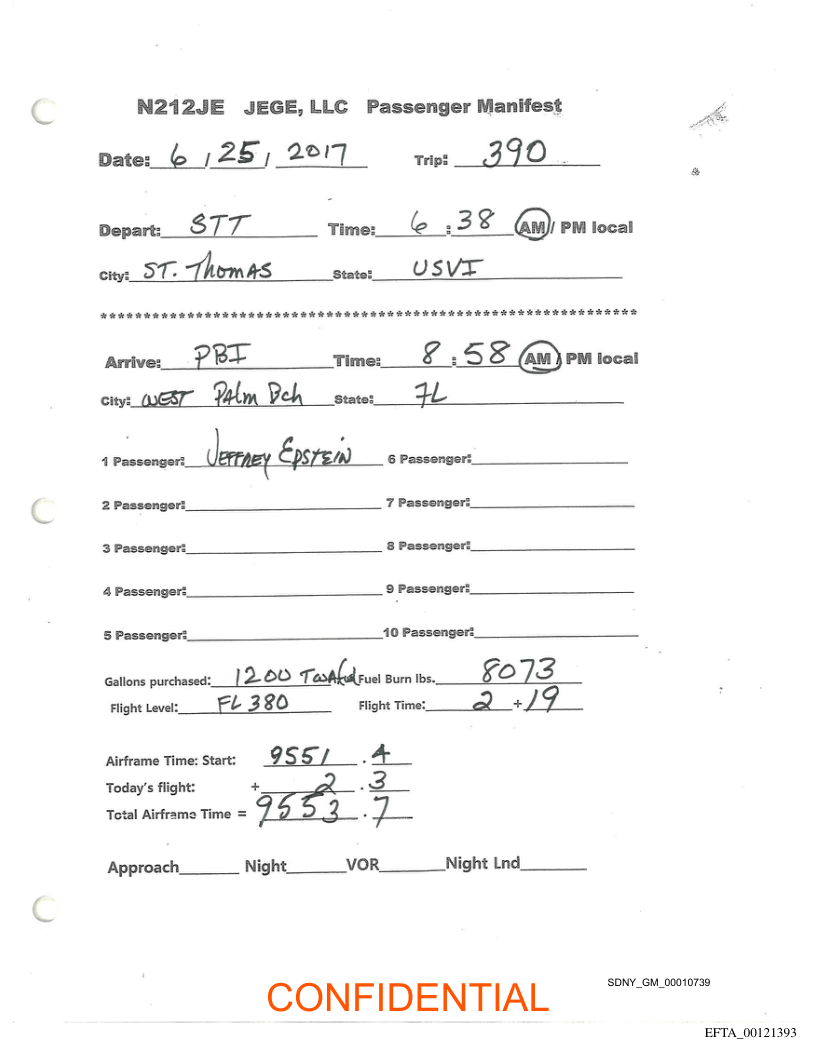 N212JE JEGE, LLC Passenger Manifest
Date: 6 / 25 / 2017 Trip: 390
Depart: STT Time: 6 : 38 AM / PM local
City: ST. Thomas State: USVI
************************************************************
Arrive: PBI Time: 8 : 58 AM / PM local
City: WEST PAlm Bch State: FL
1 Passenger: JEFFREY EPSTEIN 6 Passenger:
2 Passenger: 7 Passenger:
3 Passenger: 8 Passenger:
4 Passenger: 9 Passenger:
5 Passenger: 10 Passenger:
Gallons purchased: 1200 Fuel Burn lbs. 8073
Flight Level: FL 380 Flight Time: 2 + 19
Airframe Time: Start: 9551 . 4
Today's flight: + 2 . 3
Total Airframe Time = 9553 . 7
Approach Night VOR Night Lnd
SDNY_GM_00010739
CONFIDENTIAL
EFTA_00121393